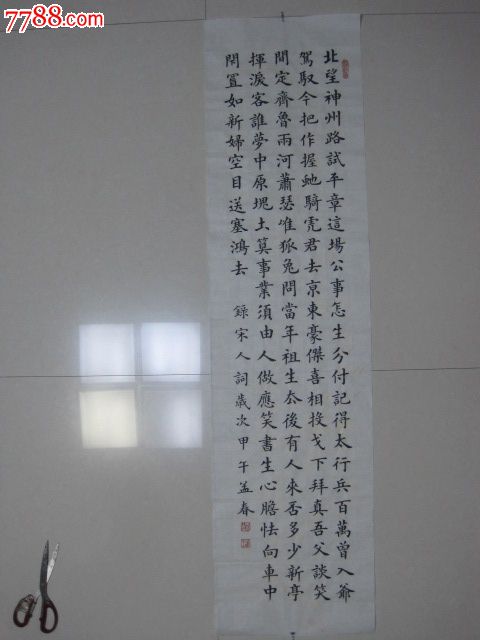 7788.com
北望神州路試平章這場公事怎生分付記得太行兵百萬曾入爺
駕馭今把作握虵騎虎君去京東豪傑喜相投戈下拜真吾父談笑
間定齊魯兩河蕭瑟唯狐兔問當年祖生去後有人來否多少新亭
揮淚客誰夢中原塊土算事業須由人做應笑書生心膽怯向車中
閉置如新婦空目送塞鴻去 錄宋人詞歲次甲午孟春